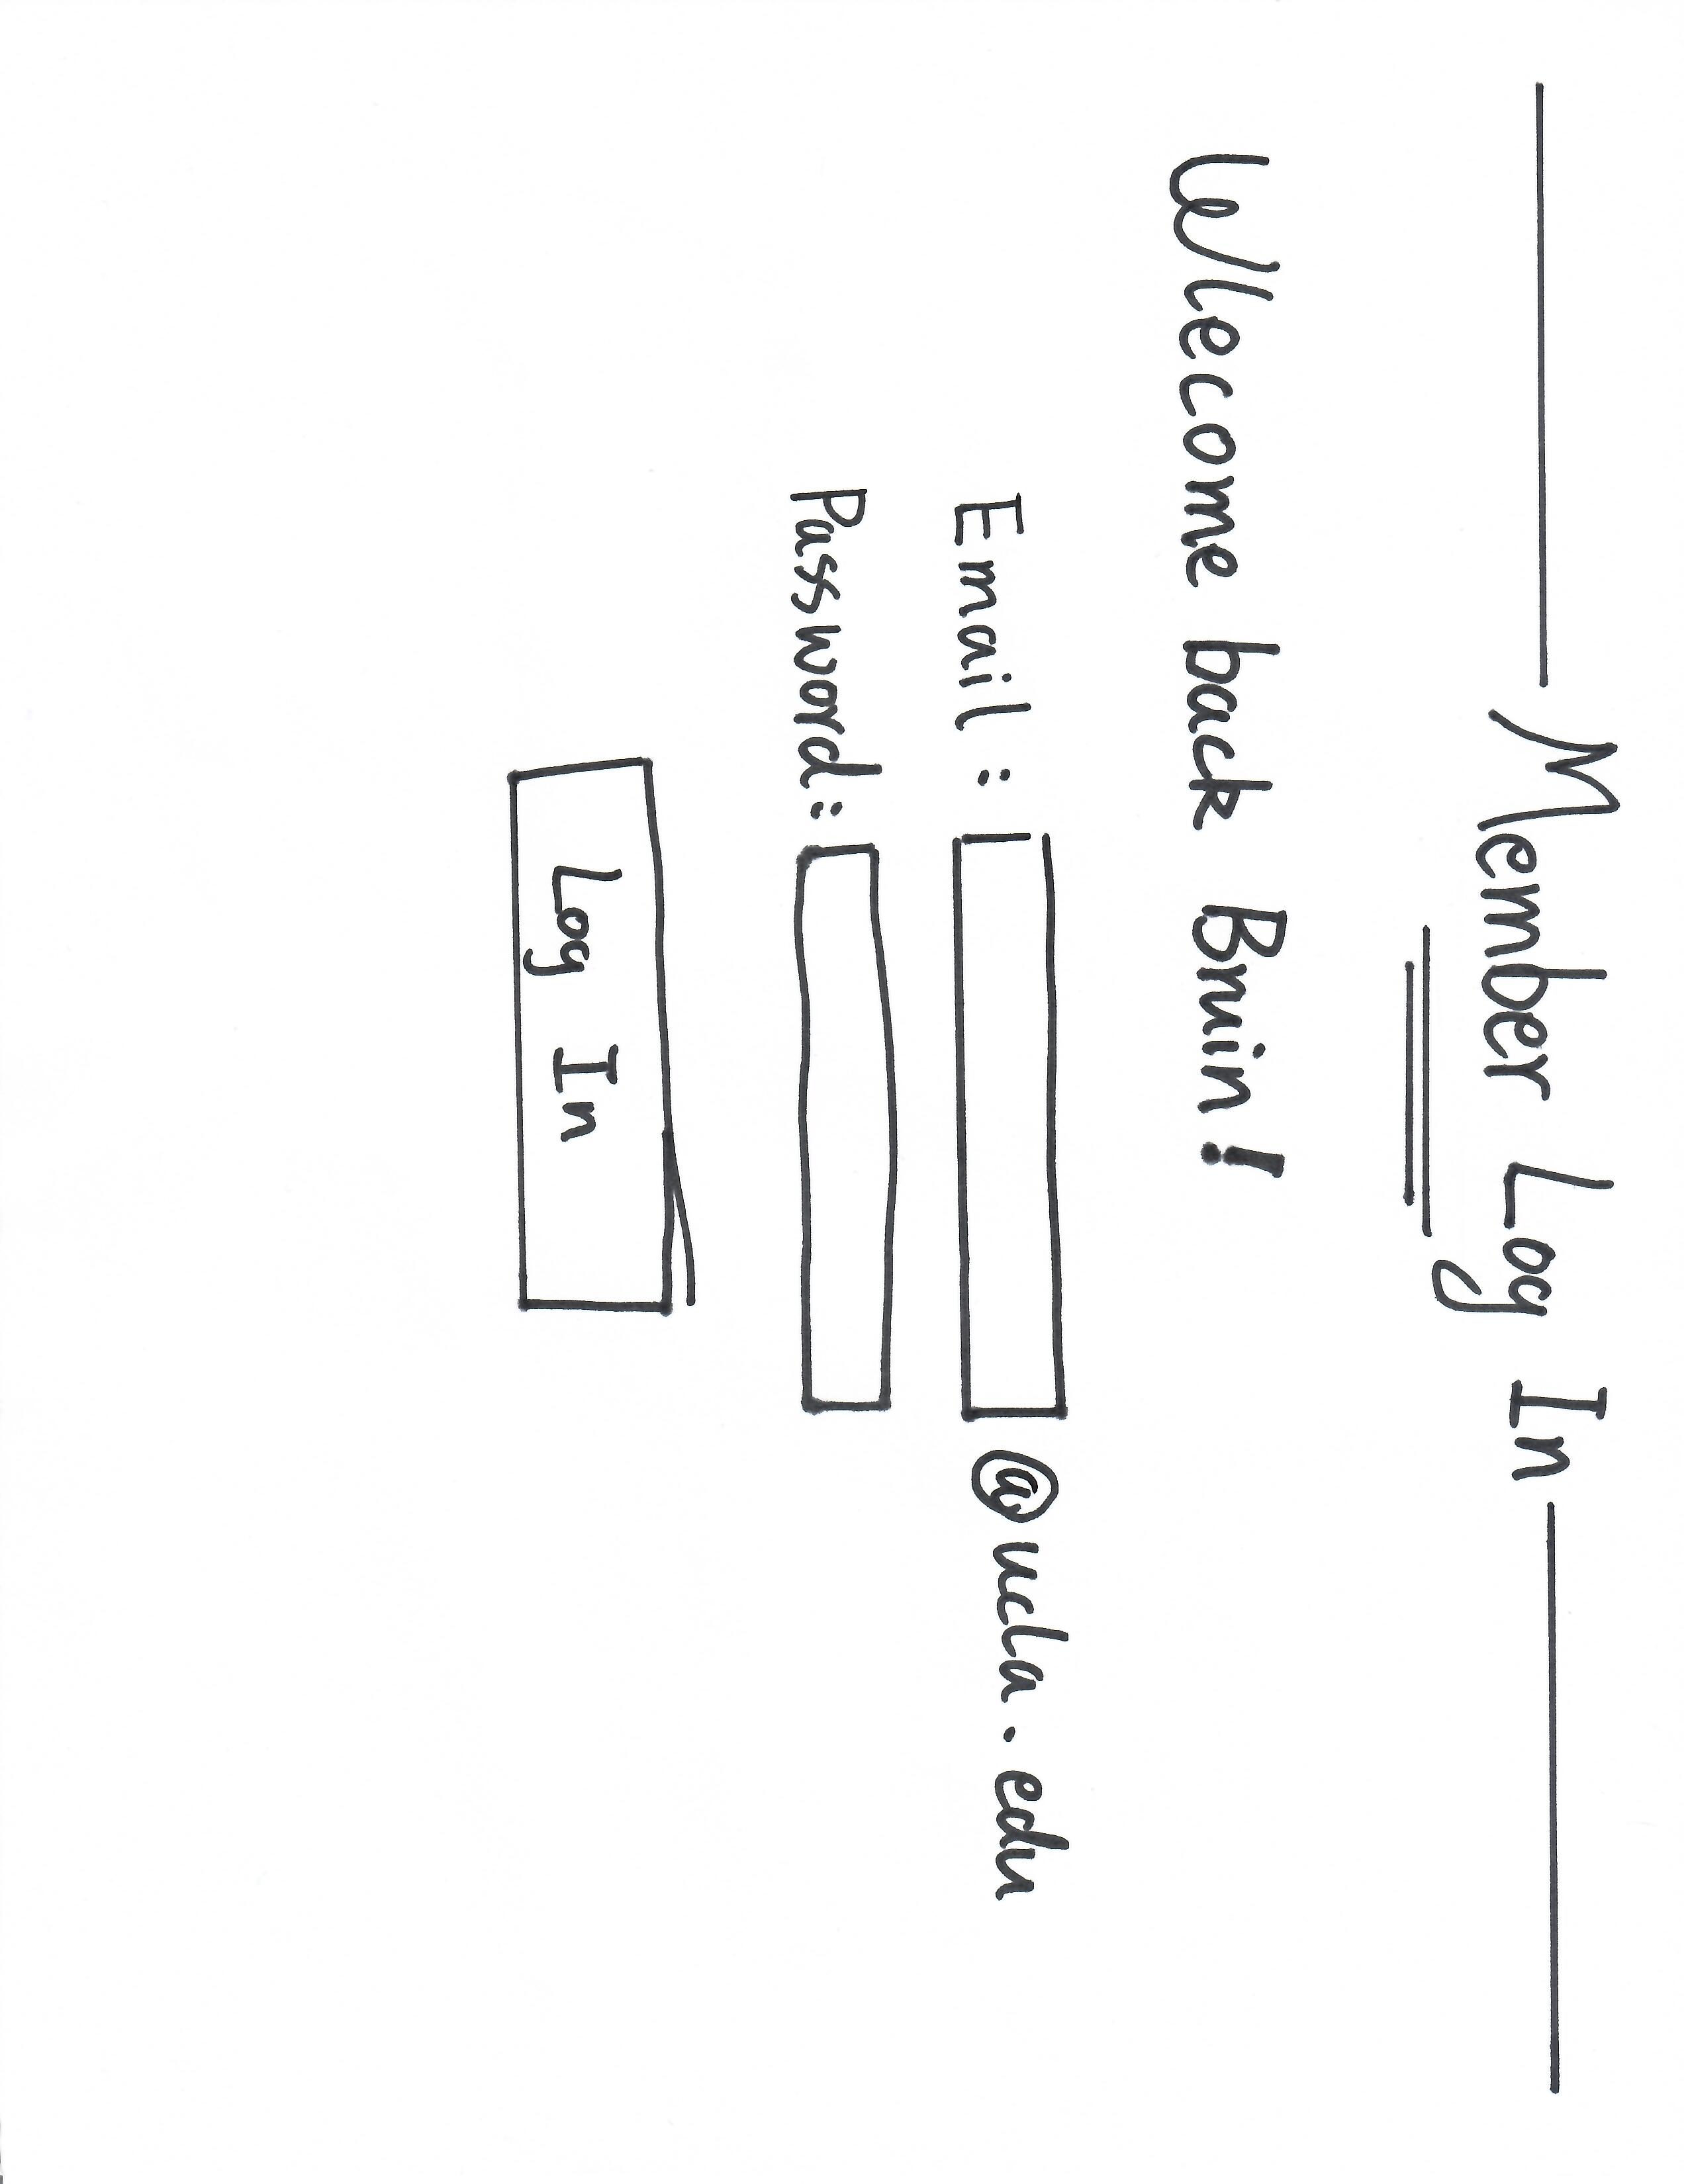 Member Log In
Wlecome back Bruin!
Email: @ucla.edu
Password:
Log In